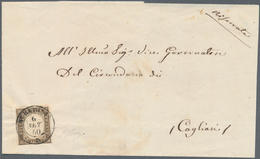 Riservata
All' Illmo Sig. Vice Governatore
Del Circondario di
(Cagliari)
6
SET
60